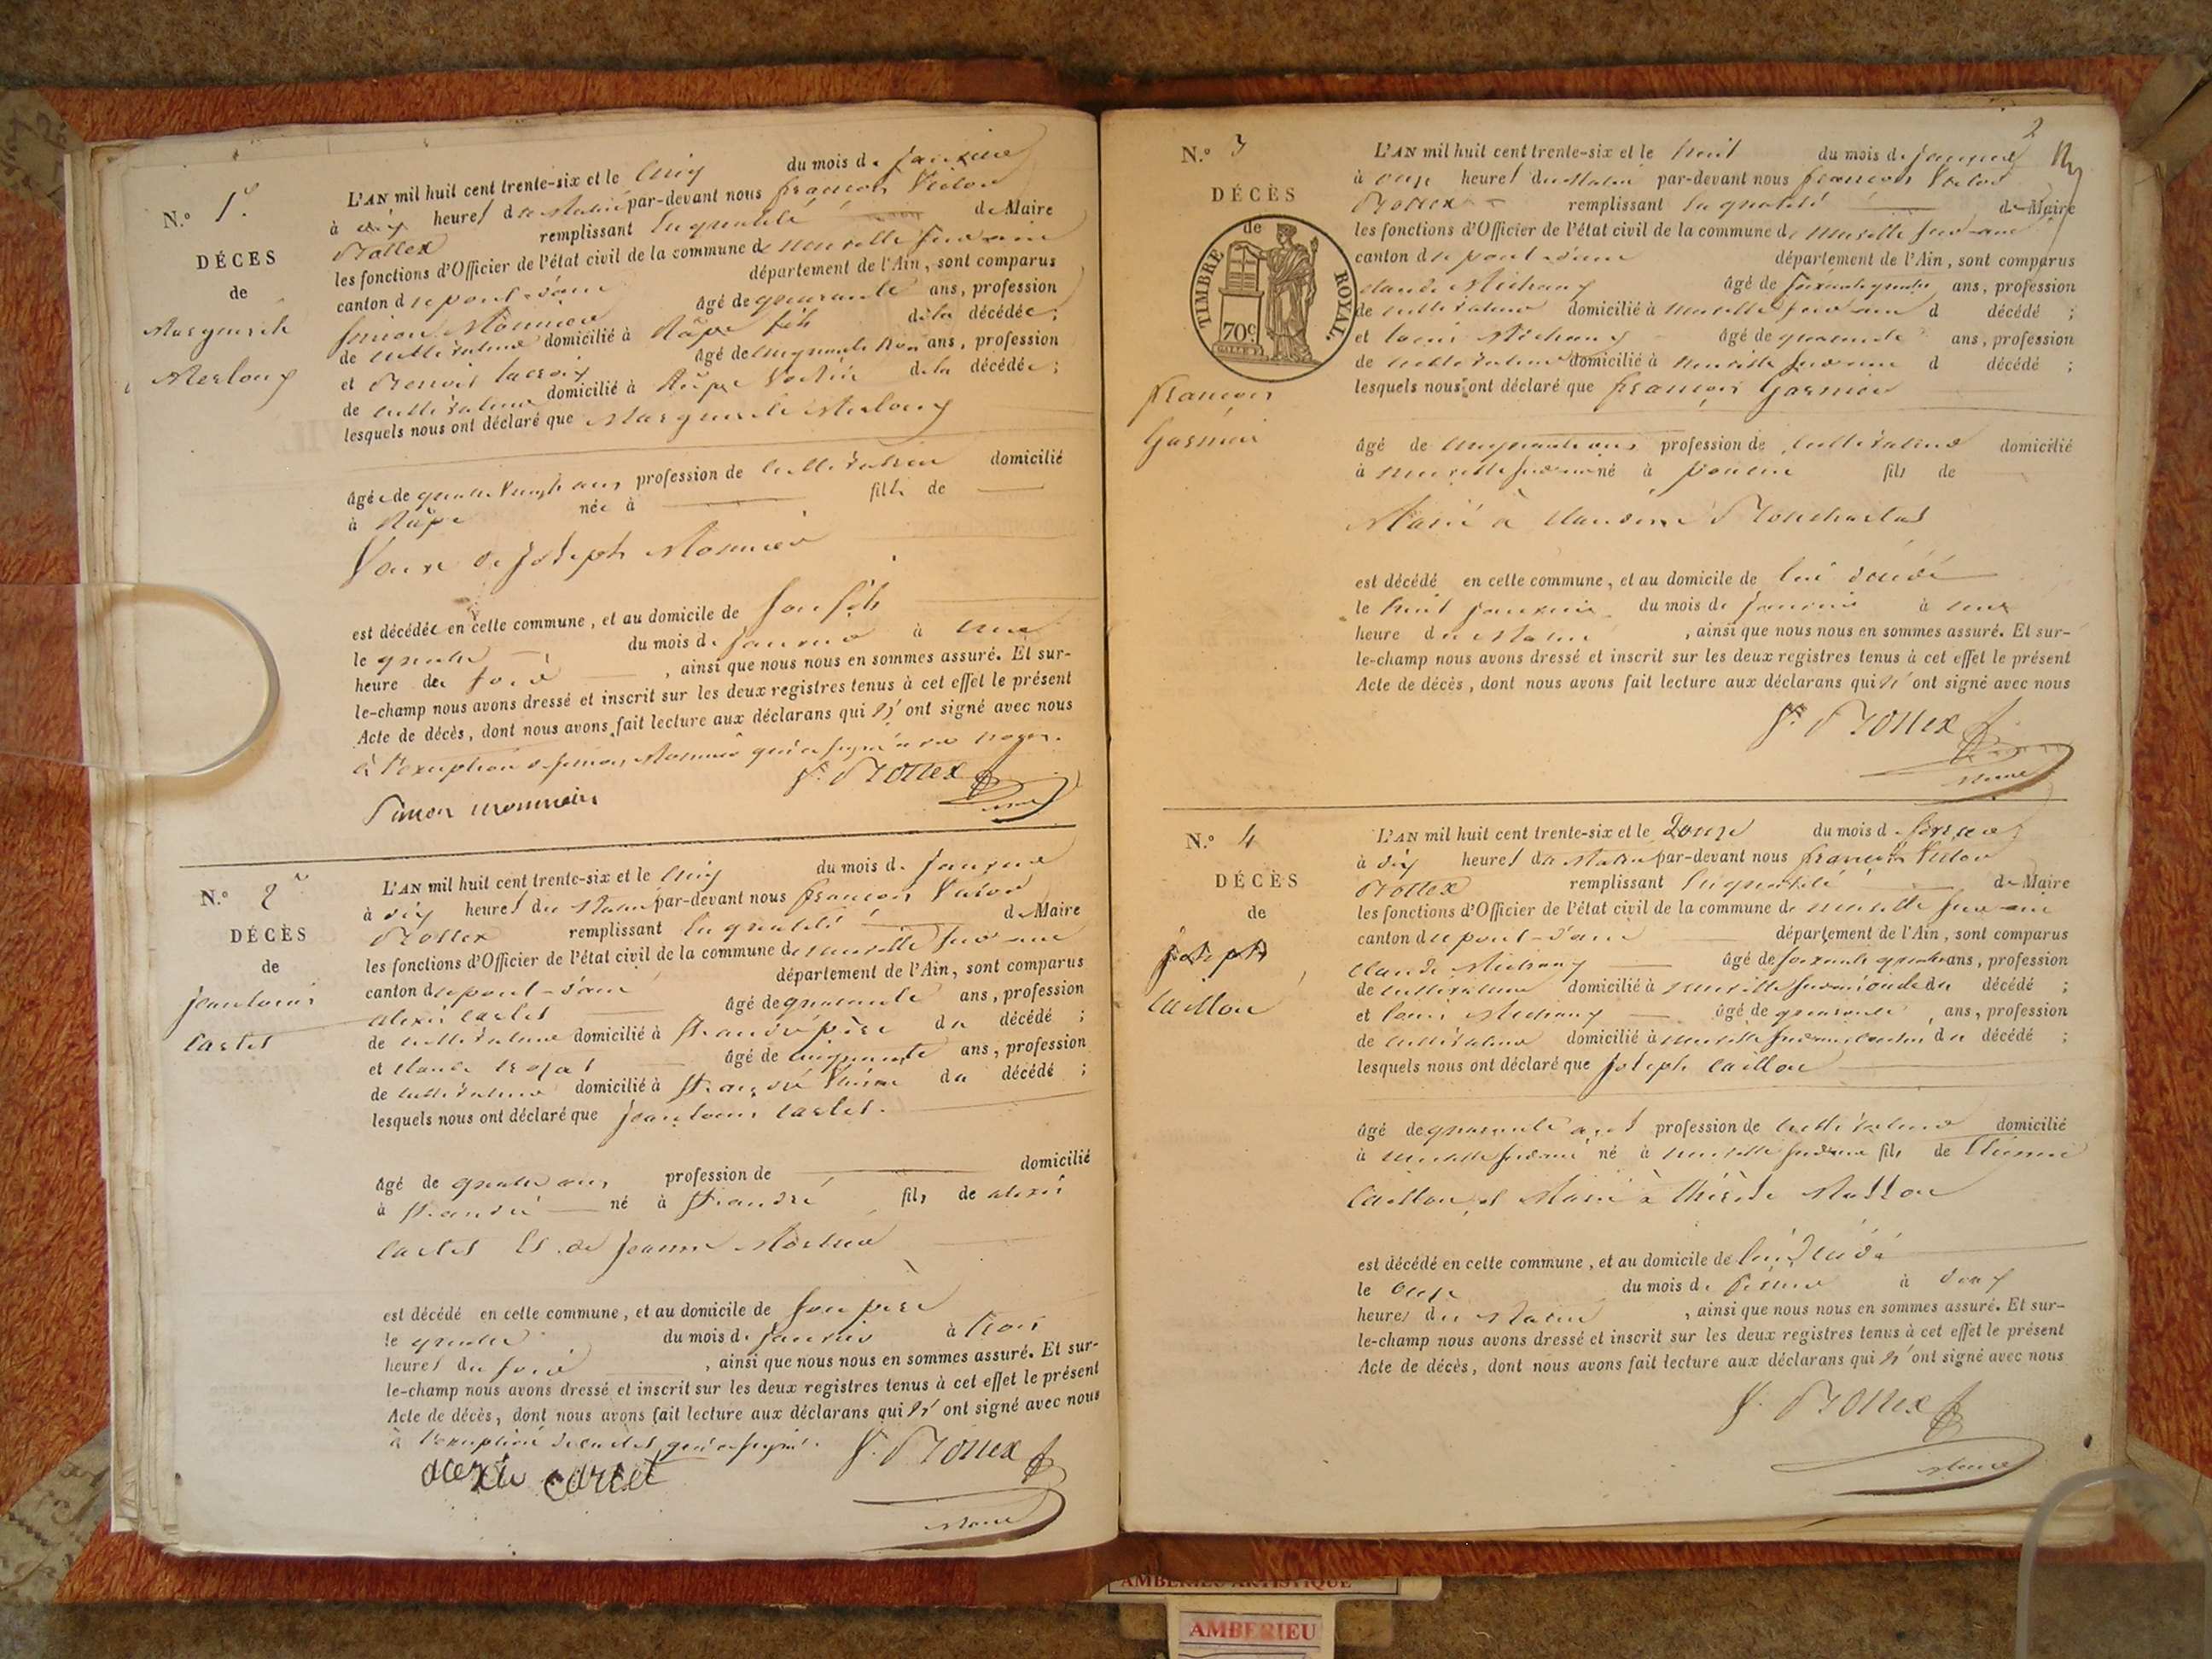 N.° 1.er
DÉCES
de
Marguerite
Merloup
L'AN mil huit cent trente-six et le cinq du mois de janvier
à dix heures du Matin par-devant nous françois Victor
remplissant la qualité de Maire
les fonctions d'Officier de l'état civil de la commune de neuville sur ain
canton de pont-d'ain département de l'Ain, sont comparus
Simon Monnier âgé de quarante ans, profession
de cultivateur domicilié à fils de la décédée ;
et Benoit lacroix âgé de cinquante ans, profession
de cultivateur domicilié à voisin de la décédée ;
lesquels nous ont déclaré que Marguerite
âgée de quatre vingts ans profession de domicilié
à née à fille de
Veuve de joseph Monnier
est décédée en cette commune, et au domicile de son fils
le quatre du mois de janvier à une
heure du soir , ainsi que nous nous en sommes assuré. Et sur-
le-champ nous avons dressé et inscrit sur les deux registres tenus à cet effet le présent
Acte de décès, dont nous avons fait lecture aux déclarans qui n'ont signé avec nous
à l'exception de simon Monnier qui a signé avec nous.
Simon monnier
Maire
N.° 2
DÉCÈS
de
jean louis
carlet
L'AN mil huit cent trente-six et le cinq du mois de janvier
à dix heures du Matin par-devant nous françois Victor
remplissant la qualité de Maire
les fonctions d'Officier de l'état civil de la commune de neuville sur ain
canton de pont-d'ain département de l'Ain, sont comparus
alexis carlet âgé de quarante ans, profession
de cultivateur domicilié à St andré père du décédé ;
et claude âgé de cinquante ans, profession
de cultivateur domicilié à St andré du décédé ;
lesquels nous ont déclaré que jean louis carlet.
âgé de quatre ans profession de domicilié
à St andré né à St andré fils de alexis
carlet Et de jeanne
est décédé en cette commune, et au domicile de son père
le quatre du mois de janvier à trois
heures du soir , ainsi que nous nous en sommes assuré. Et sur-
le-champ nous avons dressé et inscrit sur les deux registres tenus à cet effet le présent
Acte de décès, dont nous avons fait lecture aux déclarans qui n'ont signé avec nous
à l'exception de carlet qui a signé.
alexis carlet
Maire
2
N.° 3
DÉCÈS
de
TIMBRE ROYAL.
70c
françois
Garnier
L'AN mil huit cent trente-six et le huit du mois de janvier
à onze heures du Matin par-devant nous françois Victor
remplissant la qualité de Maire
les fonctions d'Officier de l'état civil de la commune de neuville sur ain
canton de pont-d'ain département de l'Ain, sont comparus
claude Michaud âgé de soixante quatre ans, profession
de cultivateur domicilié à neuville sur ain d décédé ;
et louis Michaud âgé de quarante ans, profession
de cultivateur domicilié à neuville sur ain d décédé ;
lesquels nous ont déclaré que françois Garnier
âgé de cinquante ans profession de cultivateur domicilié
à neuville sur ain né à poncin fils de
Marié à claudine
est décédé en cette commune, et au domicile de lui décédé
le huit janvier du mois de janvier à une
heure du Matin , ainsi que nous nous en sommes assuré. Et sur-
le-champ nous avons dressé et inscrit sur les deux registres tenus à cet effet le présent
Acte de décès, dont nous avons fait lecture aux déclarans qui n'ont signé avec nous
Maire
N.° 4
DÉCÈS
de
joseph
caillon
L'AN mil huit cent trente-six et le Douze du mois de février
à dix heures du Matin par-devant nous françois Victor
remplissant la qualité de Maire
les fonctions d'Officier de l'état civil de la commune de neuville sur ain
canton de pont-d'ain département de l'Ain, sont comparus
claude Michaud âgé de soixante quatre ans, profession
de cultivateur domicilié à neuville sur ain oncle du décédé ;
et louis Michaud âgé de quarante ans, profession
de cultivateur domicilié à neuville sur ain cousin du décédé ;
lesquels nous ont déclaré que joseph caillon
âgé de quarante ans profession de cultivateur domicilié
à neuville sur ain né à neuville sur ain fils de Etienne
caillon et Marié à thérèse
est décédé en cette commune, et au domicile de lui Décédé
le onze du mois de février à deux
heures du Matin , ainsi que nous nous en sommes assuré. Et sur-
le-champ nous avons dressé et inscrit sur les deux registres tenus à cet effet le présent
Acte de décès, dont nous avons fait lecture aux déclarans qui n'ont signé avec nous
Maire
AMBERIEU ARTISTIQUE
AMBERIEU